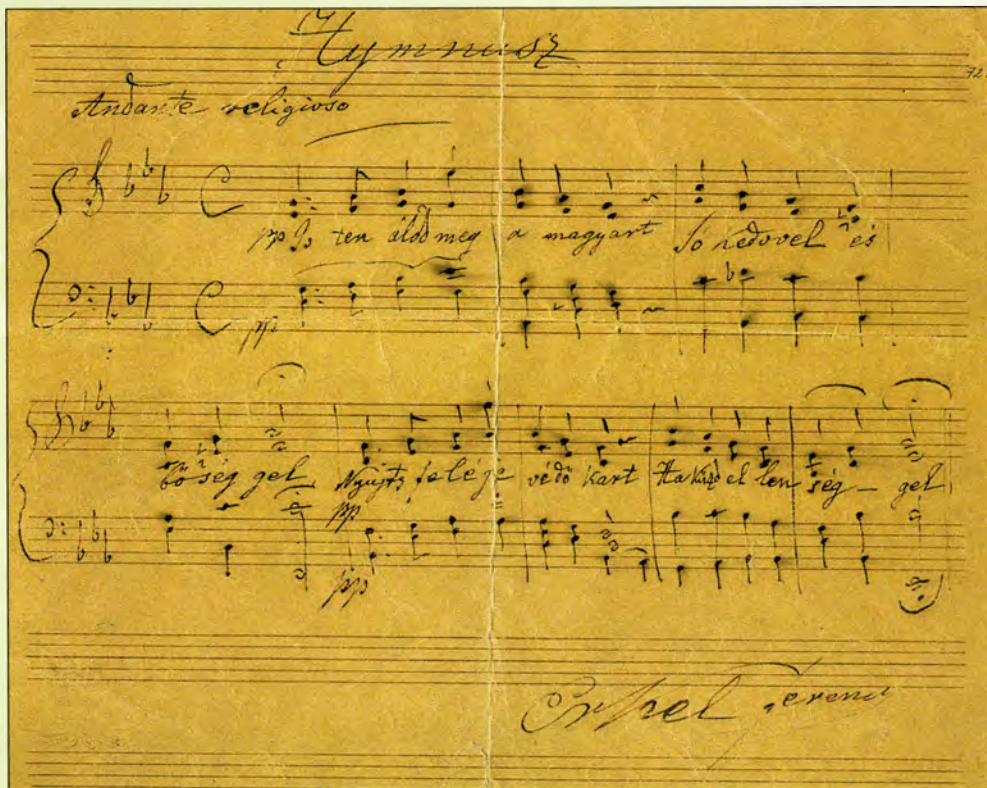 Hymnusz
72
Andante religioso
pp Is ten áldd meg a magyart Jó kedvvel és
pp
bő ség gel Nyújts feléje védő kart Ha küzd el len ség – gel
pp
pp
Erkel Ferenc